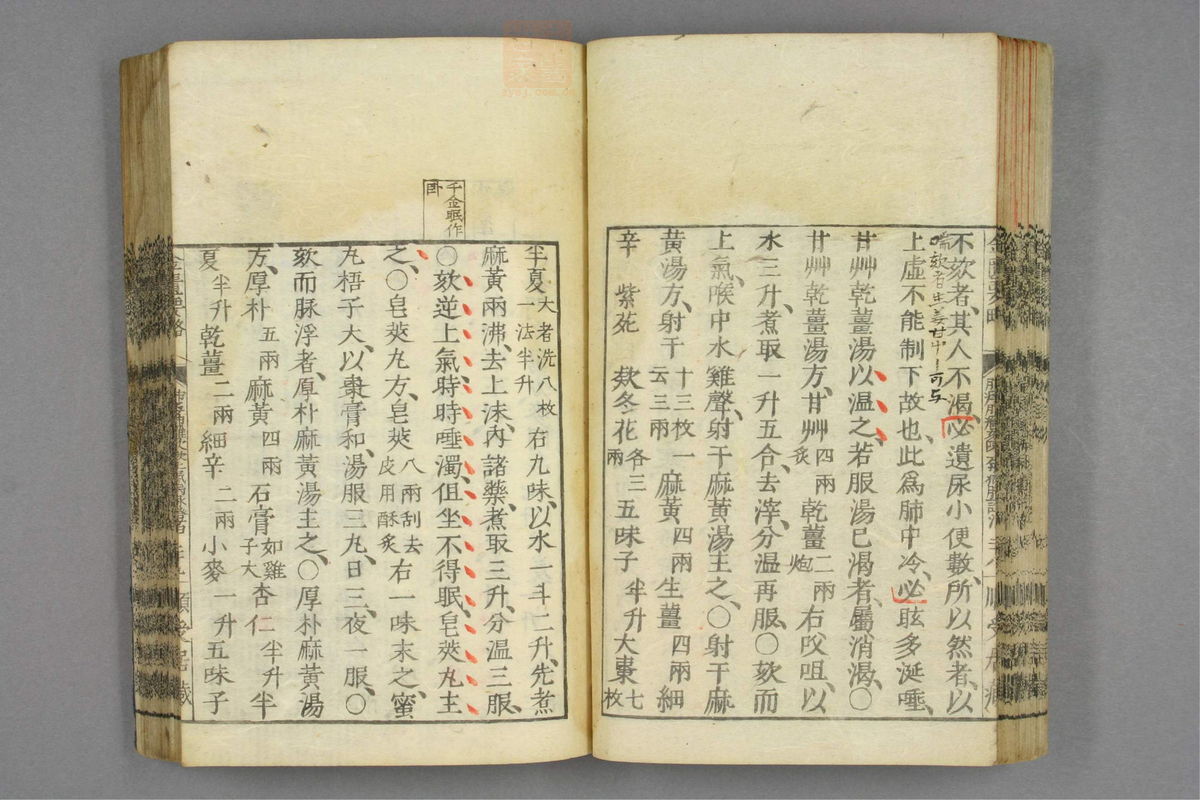 不欬者、其人不渴、必遺尿小便數、所以然者、以
上虛不能制下故也、此爲肺中冷、必眩多涎唾、
甘艸乾薑湯、以温之、若服湯已渴者、屬消渴、○
甘艸乾薑湯方、甘艸四兩炙乾薑二兩炮右㕮咀、以
水三升、煮取一升五合、去滓、分温再服、○欬而
上氣、喉中水雞聲、射干麻黄湯主之、○射干麻
黄湯方、射干十三枚一云三兩麻黄四兩生薑四兩細
辛 紫菀 欵冬花各三兩五味子半升大棗七枚
千金眠作卧
半夏大者洗八枚一法半升右九味、以水一斗二升、先煮
麻黄兩沸、去上沫、内諸藥、煮取三升、分温三服、
○欬逆上氣、時時唾濁、但坐不得眠、皂莢丸主
之、○皂莢丸方、皂莢八兩刮去皮用酥炙右一味末之、蜜
丸梧子大、以棗膏和、湯服三丸、日三、夜一服、○
欬而脉浮者、厚朴麻黄湯主之、○厚朴麻黄湯
方、厚朴五兩麻黄四兩石膏如雞子大杏仁半升半
夏半升乾薑二兩細辛二兩小麥一升五味子